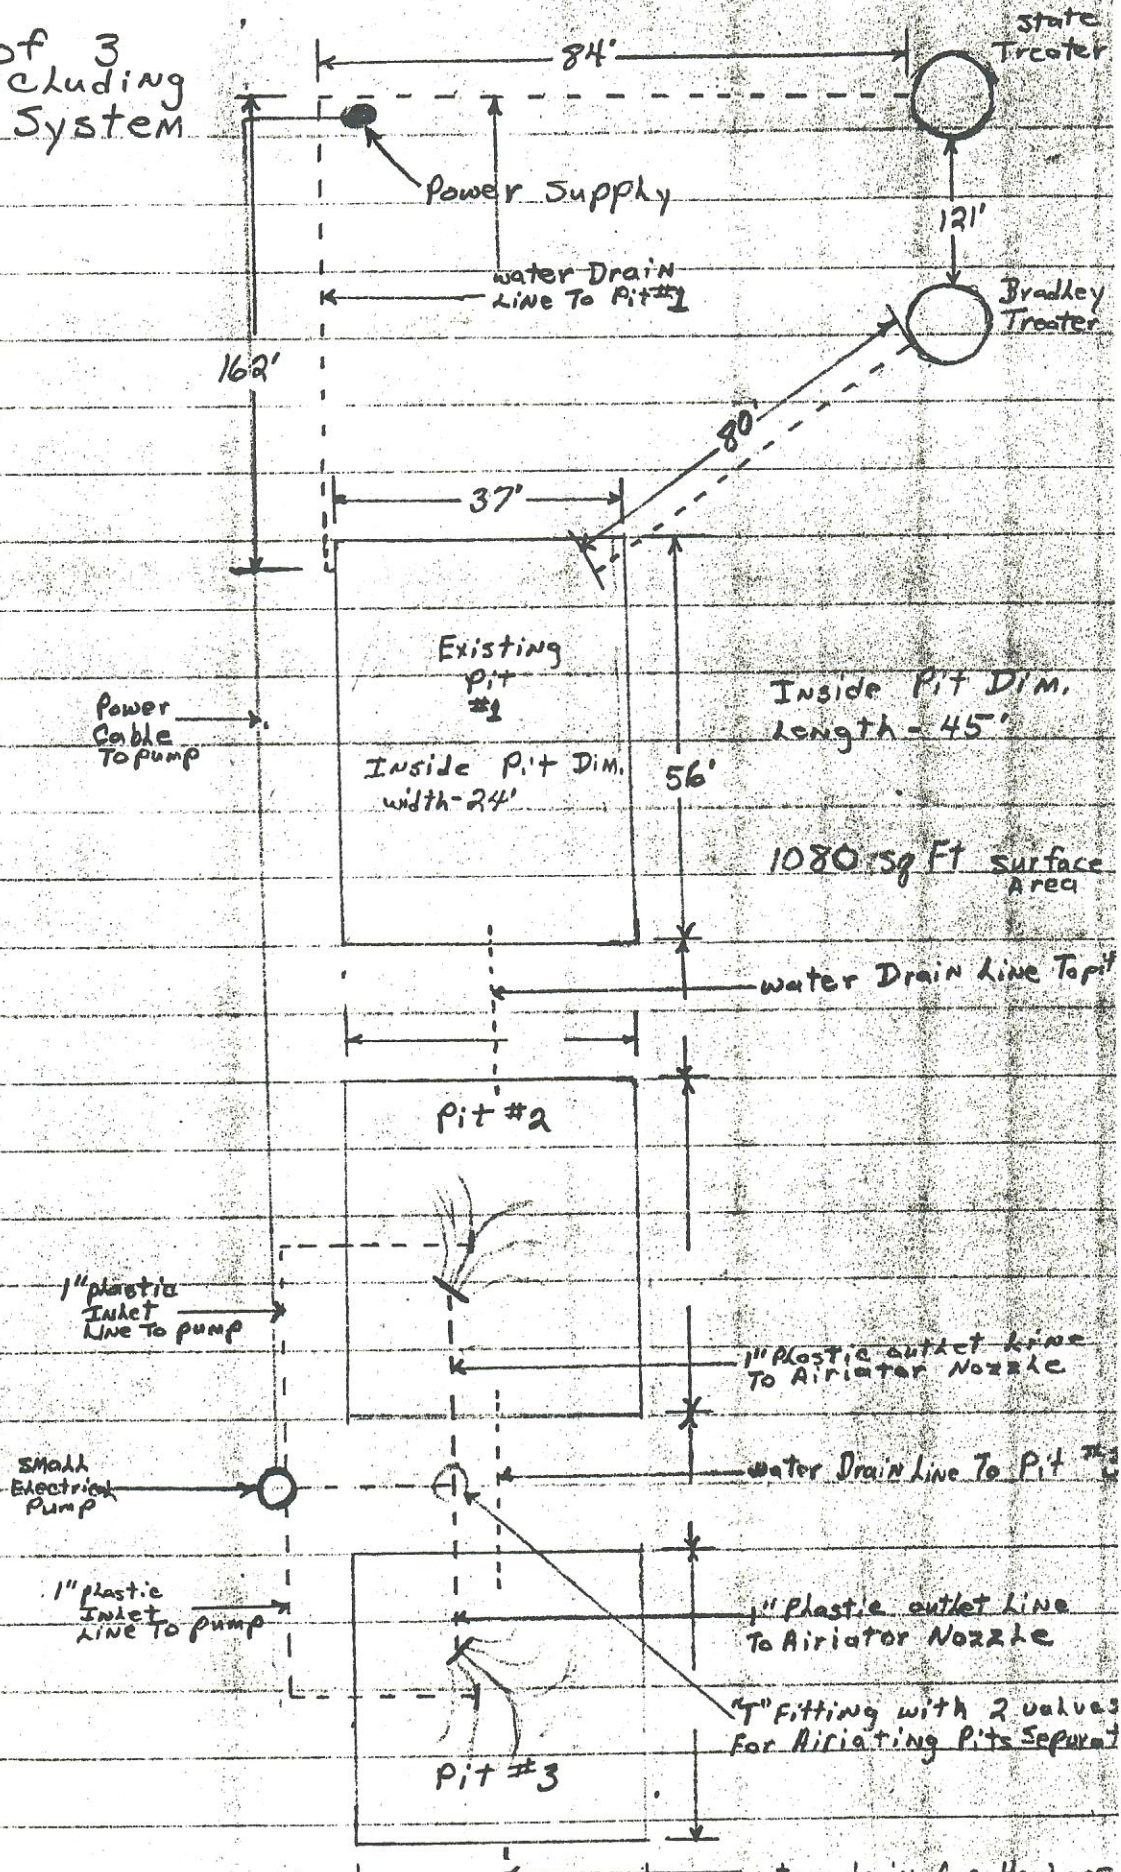 of 3
cluding
System
84'
State
Treater
Power Supply
121'
water Drain
Line To Pit #1
Bradley
Treater
162'
80'
37'
Existing
Pit
#1
Inside Pit Dim.
Length - 45'
Power
Cable
To pump
Inside Pit Dim.
width - 24'
56'
1080 sq Ft surface
Area
water Drain Line To pit
Pit #2
1" plastic
Inlet
Line To pump
1" Plastic outlet Line
To Airiator Nozzle
Small
Electrical
Pump
water Drain Line To Pit
1" plastic
Inlet
Line To pump
1" Plastic outlet Line
To Airiator Nozzle
"T" Fitting with 2 valves
For Airiating Pits Separat
Pit #3